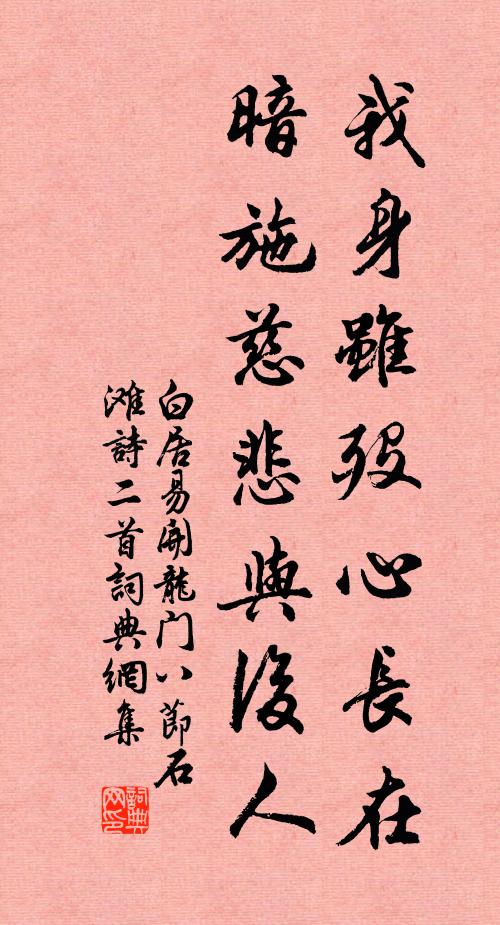 我身雖歿心長在
暗施慈悲與後人
白居易開龍门八節石
滩詩二首詞典網集
詞典網印